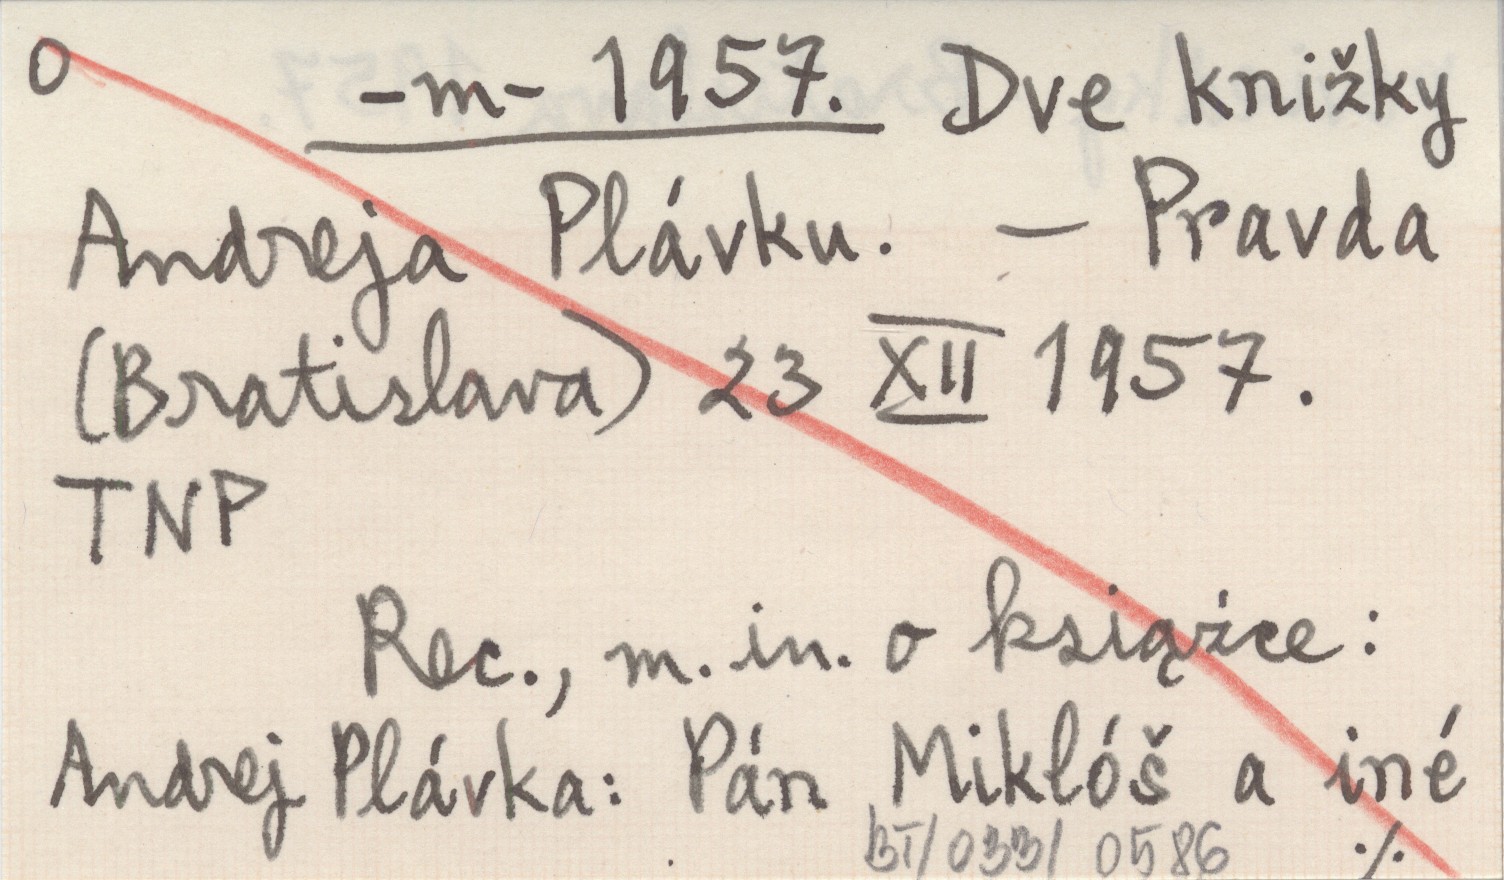 O -m- 1957. Dve knižky
Andreja Plávku. — Pravda
(Bratislava) 23 XII 1957.
TNP
Rec., m. in. o książce:
Andrej Plávka: Pán Miklóš a iné
BT/033/ 0586 ./.